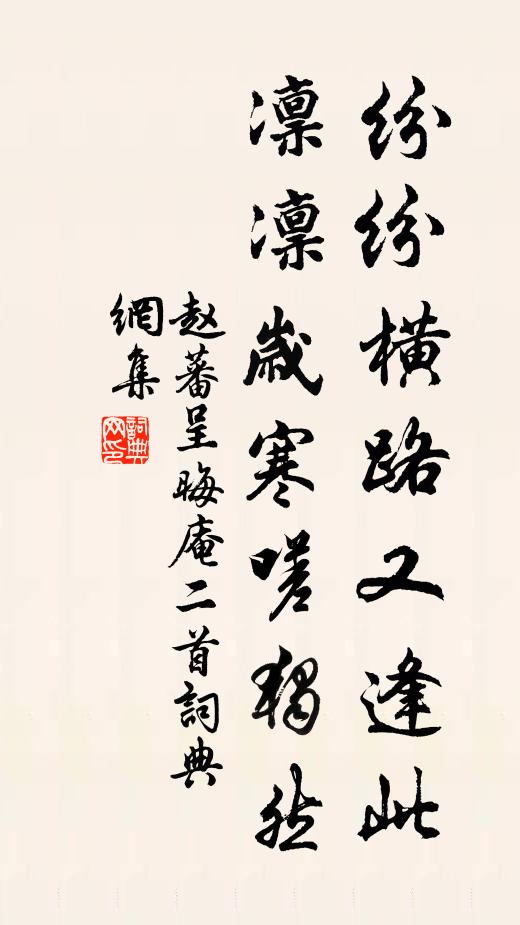 纷纷横路又逢此
凛凛岁寒嗟独然
赵蕃呈晦庵二首詞典
網集
詞典網印